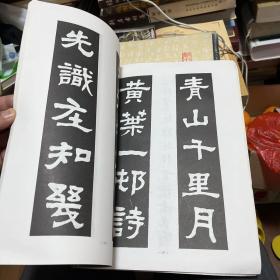 青山千里月
黃葉一邨詩
先識庄知幾